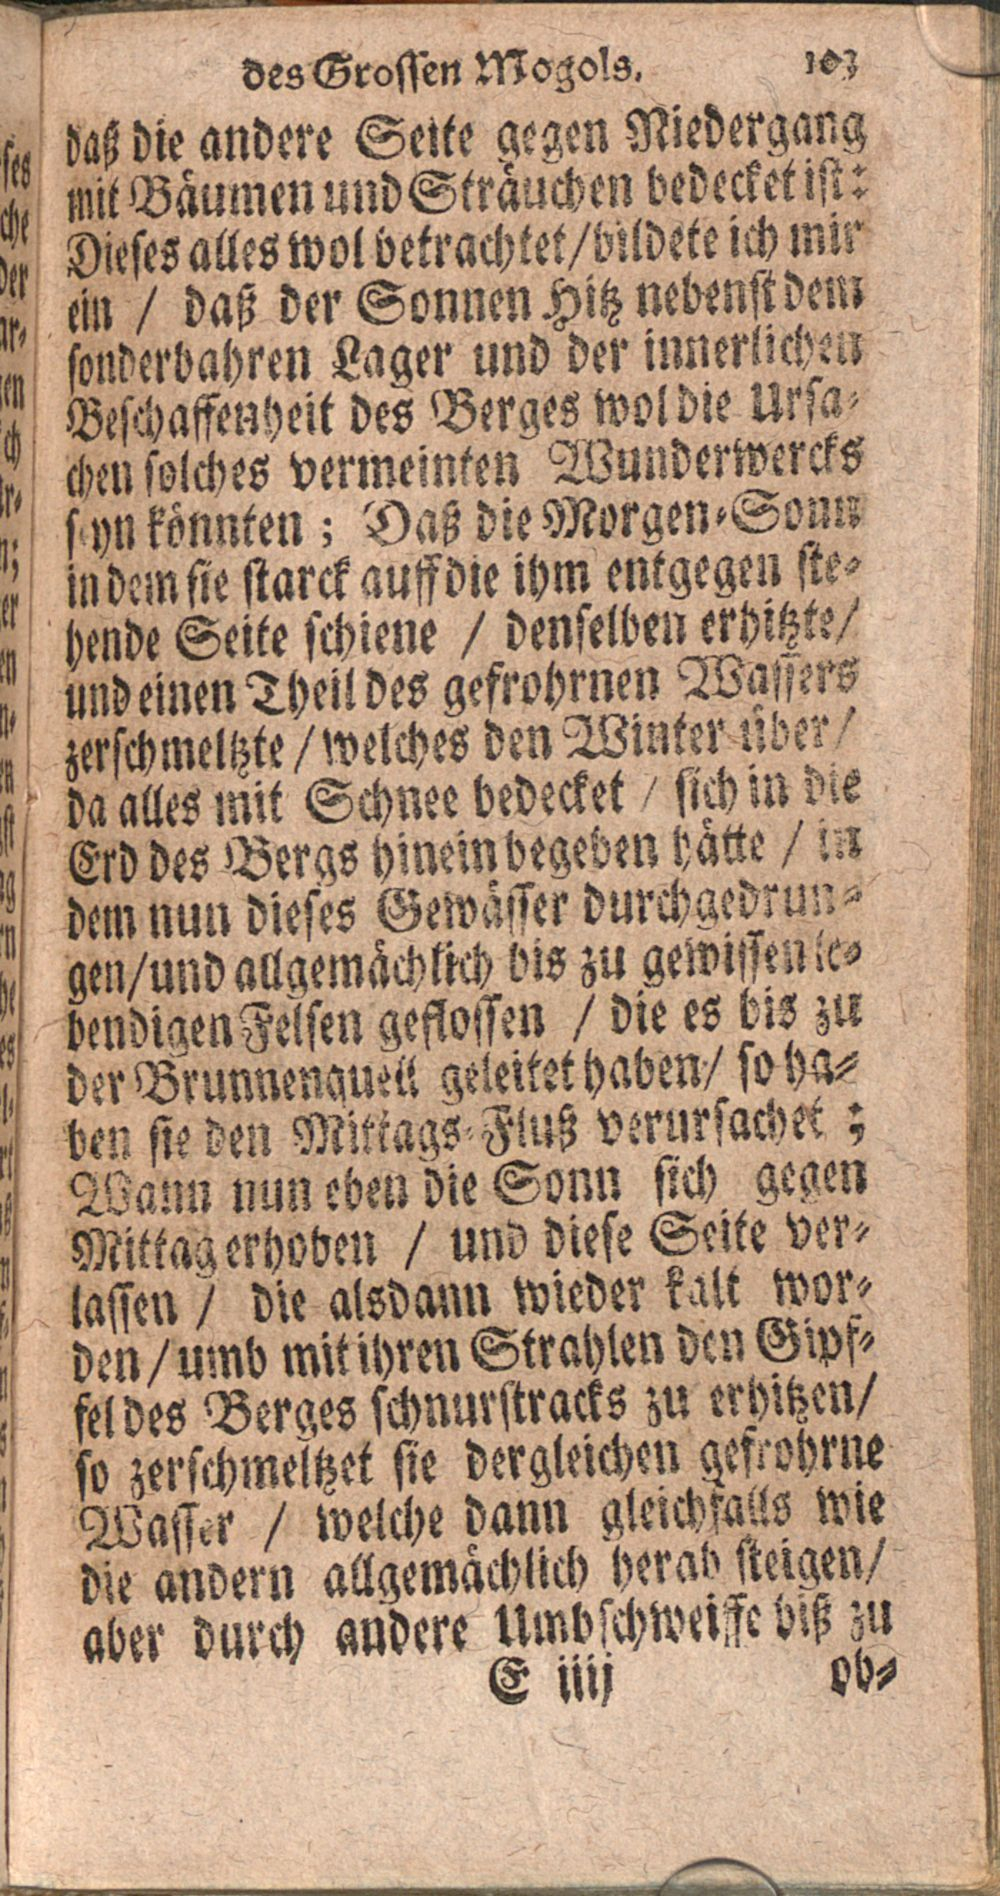 des Grossen Mogols. 103
daß die andere Seite gegen Niedergang
mit Bäumen und Sträuchen bedecket ist:
Dieses alles wol betrachtet/bildete ich mir
ein / daß der Sonnen Hitz nebenst dem
sonderbahren Lager und der innerlichen
Beschaffenheit des Berges wol die Ursa-
chen solches vermeinten Wunderwercks
seyn könnten ; Daß die Morgen-Sonn
in dem sie starck auff die ihm entgegen ste-
hende Seite schiene / denselben erhitzte/
und einen Theil des gefrohrnen Wassers
zerschmeltzte / welches den Winter über/
da alles mit Schnee bedecket / sich in die
Erd des Bergs hinein begeben hätte / in
dem nun dieses Gewässer durchgedrun-
gen/und allgemächlich bis zu gewissen le-
bendigen Felsen geflossen / die es bis zu
der Brunnenquell geleitet haben/ so ha-
ben sie den Mittags-Fluß verursachet ;
Wann nun eben die Sonn sich gegen
Mittag erhoben / und diese Seite ver-
lassen / die alsdann wieder kalt wor-
den / umb mit ihren Strahlen den Gipf-
fel des Berges schnurstracks zu erhitzen/
so zerschmeltzet sie dergleichen gefrohrne
Wasser / welche dann gleichfalls wie
die andern allgemächlich herab steigen/
aber durch andere Umbschweiffe biß zu
E iiij ob-